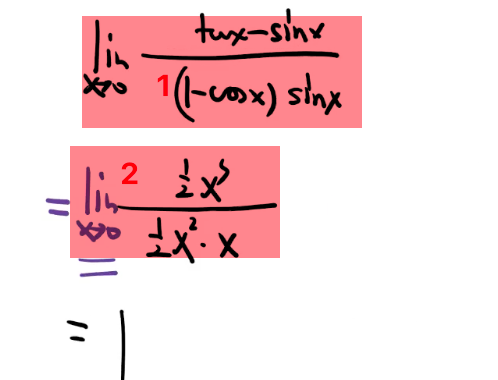 lim x→0 (tanx-sinx)/((1-cosx) sinx)
1
= lim x→0 (1/2 x³)/(1/2 x²·x)
2
= 1